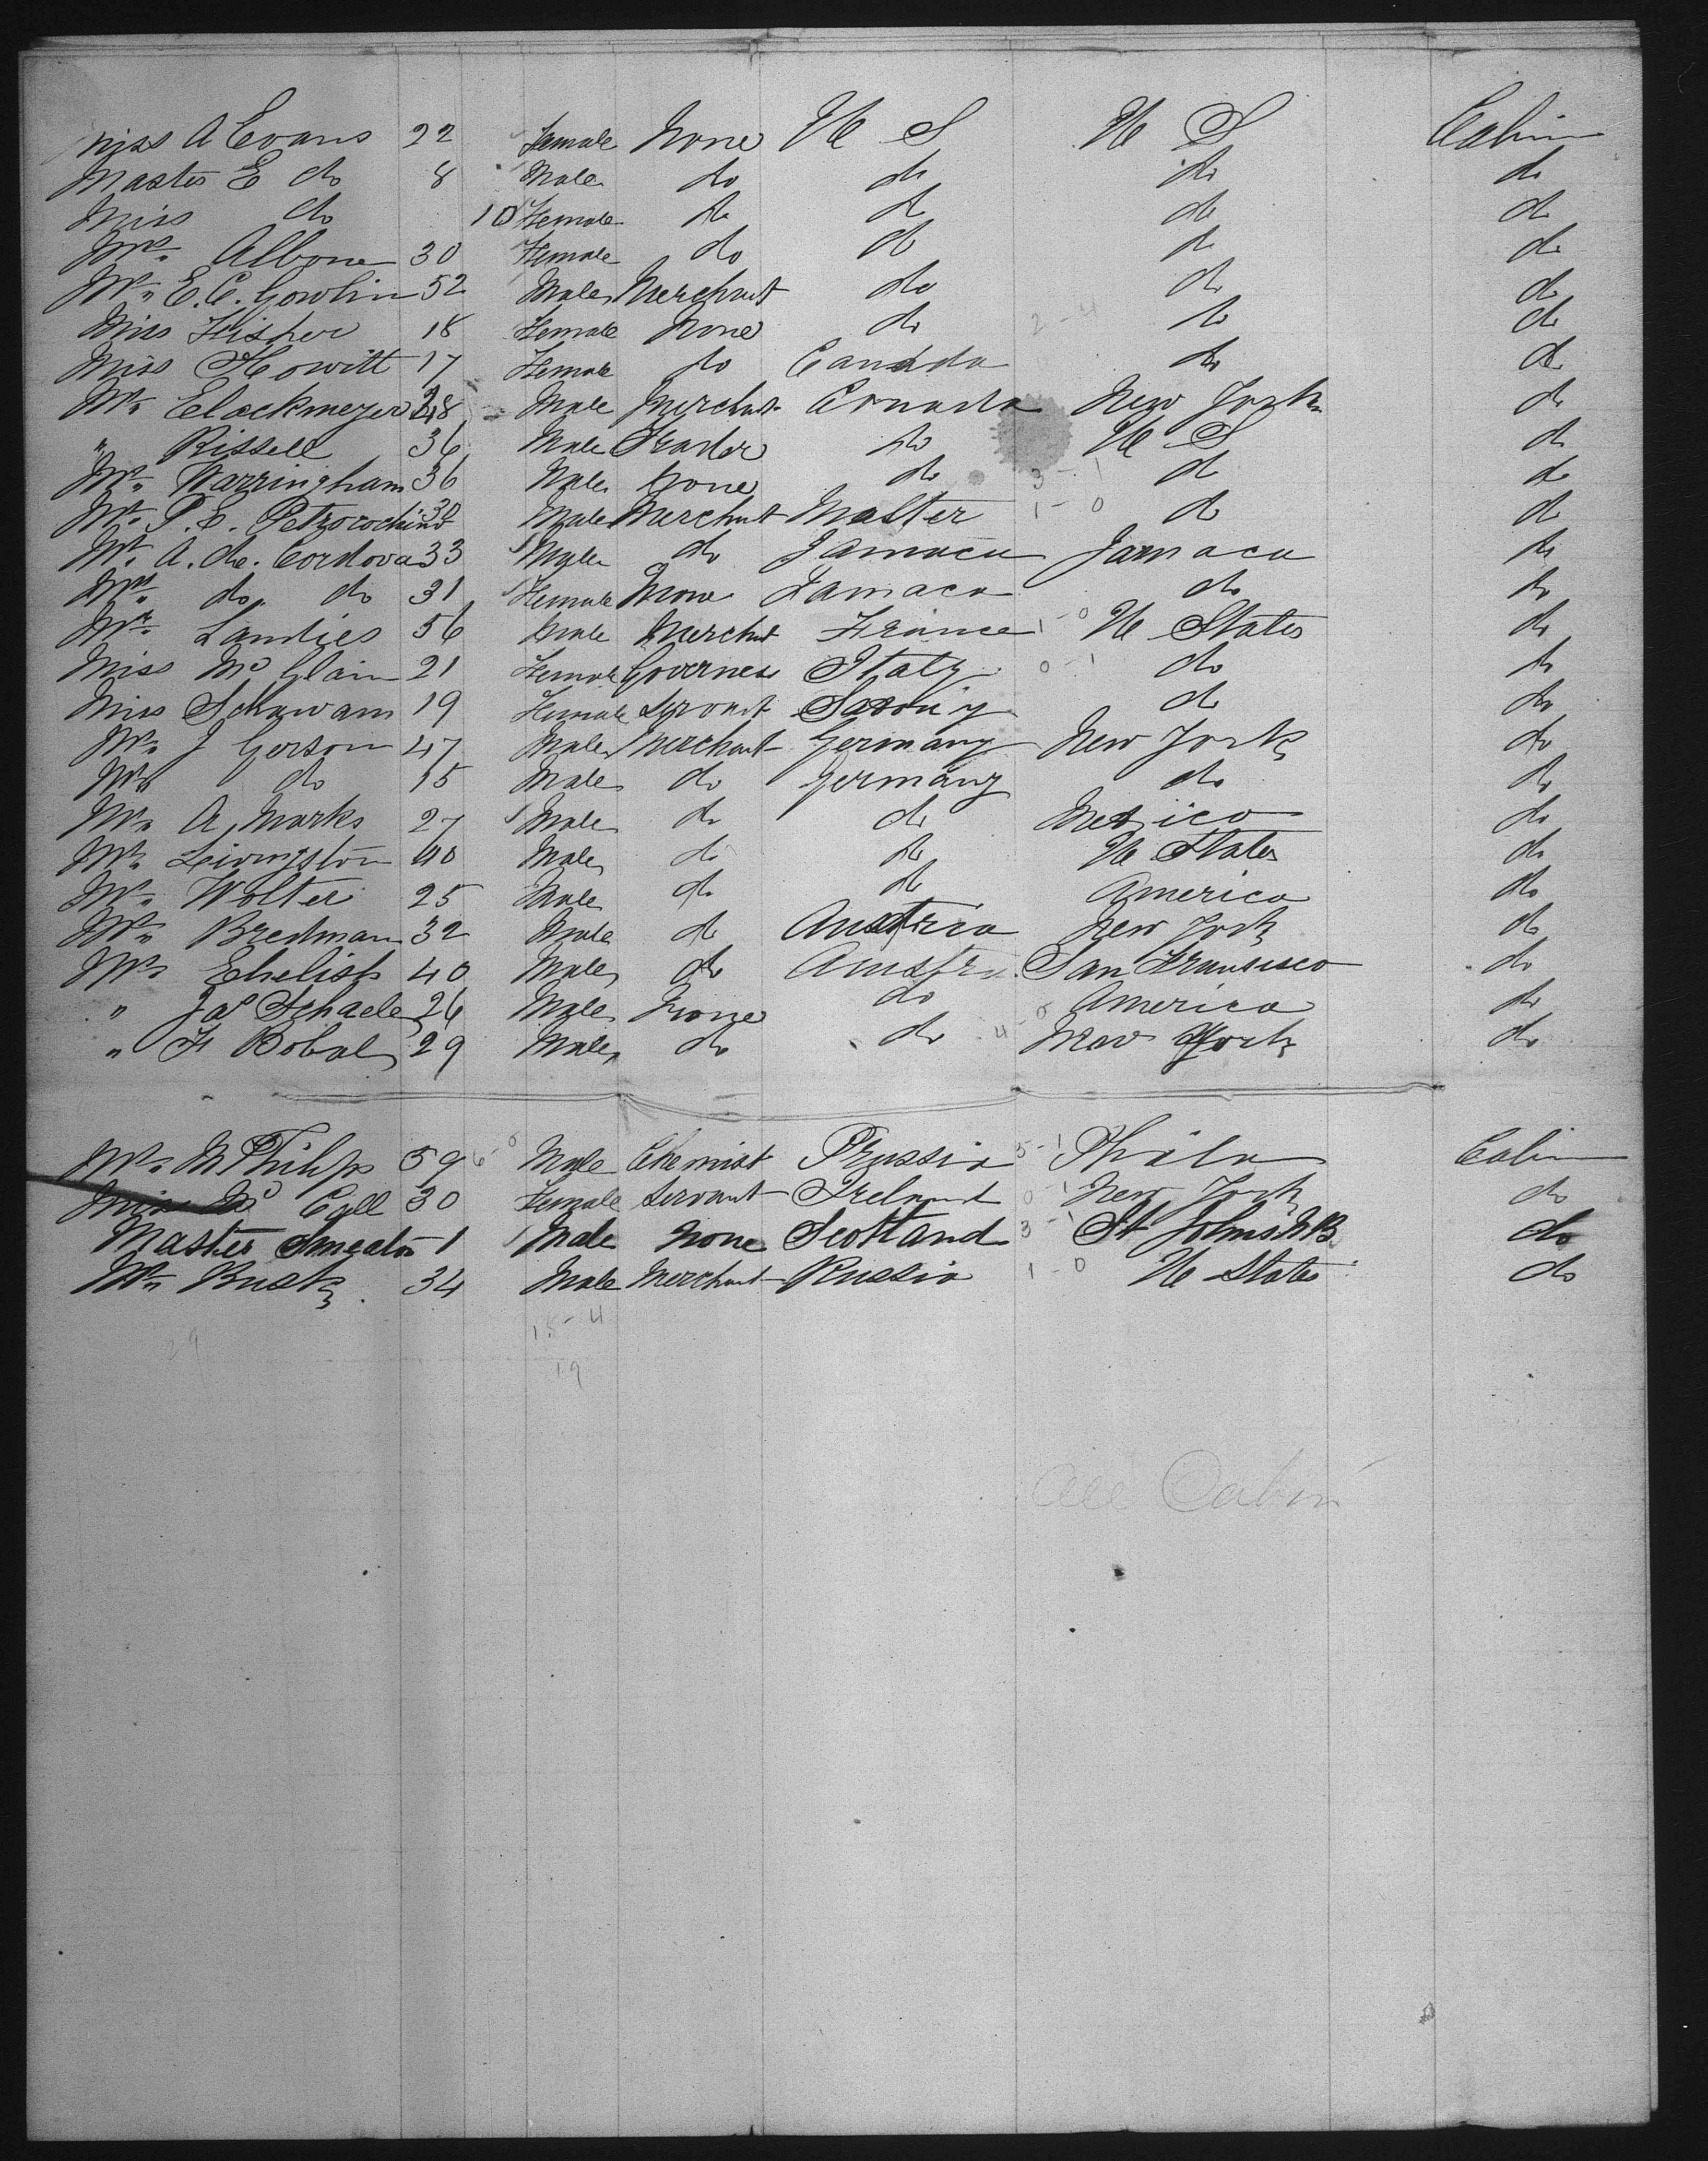 Miss A Evans 22 Female None U S U S Cabin
Master E do 8 Male do do do do
Miss do 10 Female do do do do
Mrs Albone 30 Female do do do do
Mr E. C. Gowlin 52 Male Merchant do do do
Miss Fisher 18 Female None do 2-4 do do
Miss Howitt 17 Female do Canada do do
Mr Clackmeyer 48 Male Merchant Canada New York do
" Rissell 36 Male Trader do U S do
Mr Warringham 36 Male None do 3-1 do do
Mr P. E. Petrocochino 30 Male Merchant Malter 1-0 do do
Mr A. de. Cordova 33 Male do Jamaca Jamaca do
Mrs do do 31 Female None Jamaca do do
Mr Landies 56 Male Merchant France 1-0 U States do
Miss Mc Clain 21 Female Governess Italy 0-1 do do
Miss Schawam 19 Female Servant Saxony do do
Mr J Gerson 47 Male Merchant Germany New York do
Mr do 15 Male do Germany do do
Mr A Marks 27 Male do do Mexico do
Mr Livingston 40 Male do do U States do
Mr Wolter 25 Male do do America do
Mr Bredman 32 Male do Austria New York do
Mr Ehelish 40 Male do Austria San Fransisco do
" Jas Schaele 26 Male None do America do
" F Bobal 29 Male do do 4-0 New York do
Mr M Philips 59 Male Chemist Prussia 5-1 Phila Cabin
Miss Mc Coll 30 Female Servant Ireland 0-1 New York do
Master Smeaton 1 Male None Scotland 3-1 St Johns NB do
Mr Busk 34 Male Merchant Russia 1-0 U States do
15-4
29
19
All Cabin